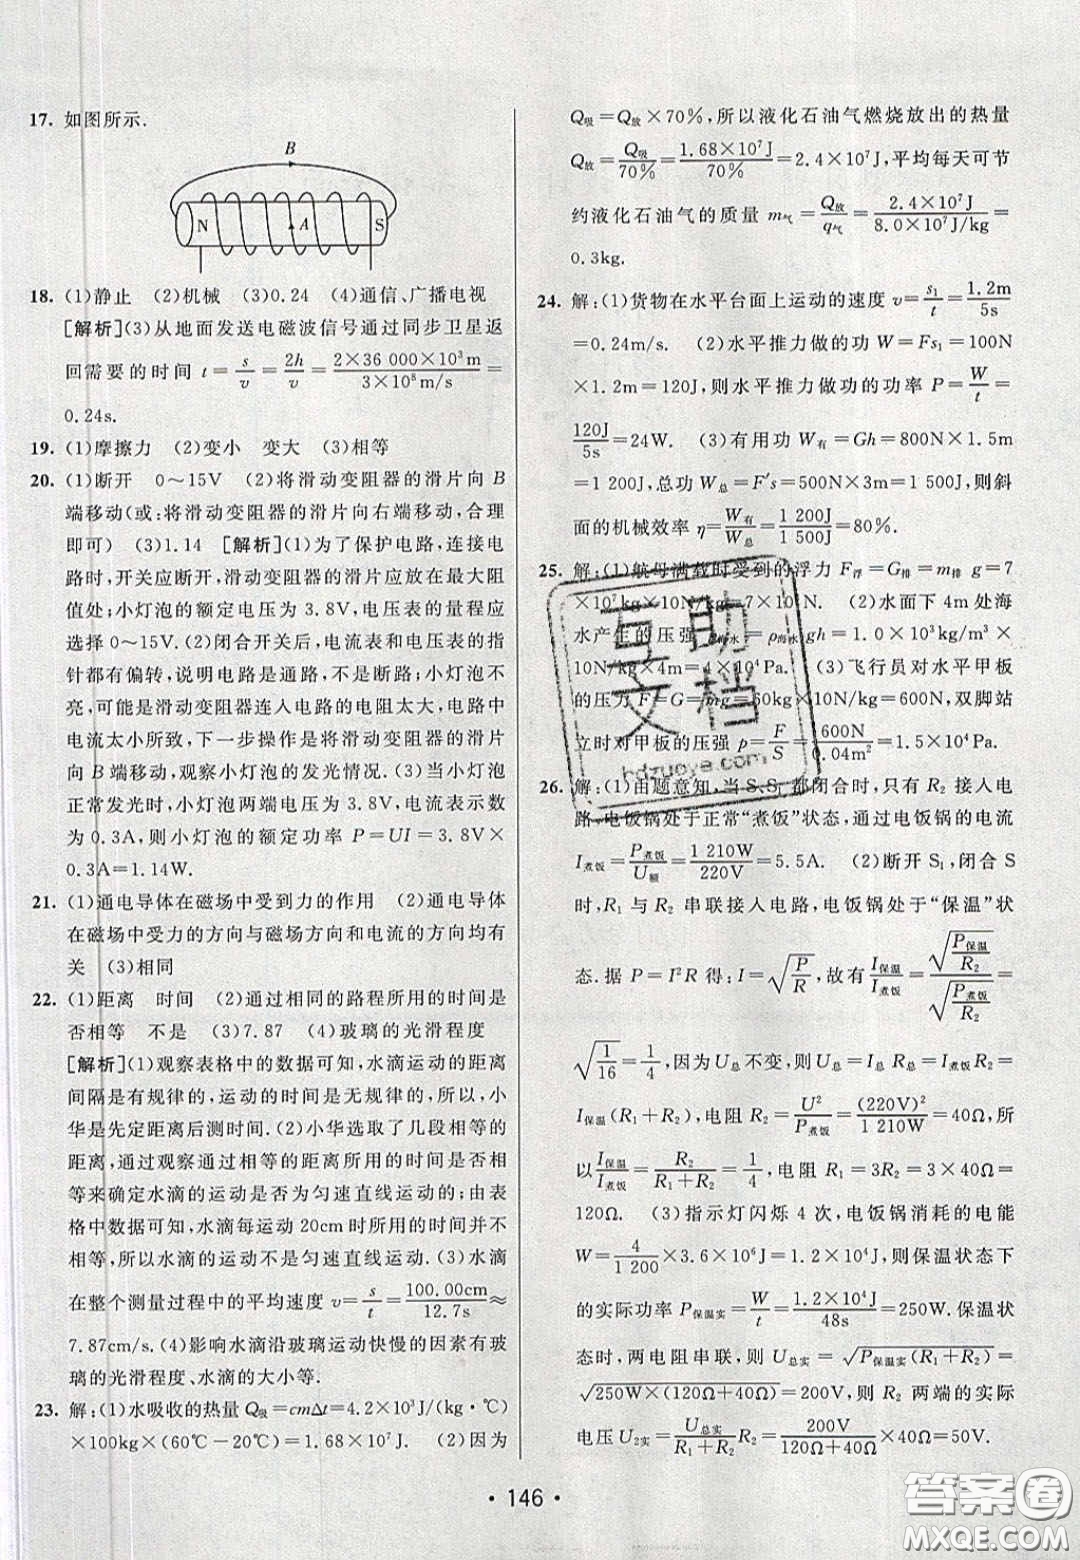 17. 如图所示.
B
N
A
S
18. (1)静止 (2)机械 (3)0.24 (4)通信、广播电视
[解析](3)从地面发送电磁波信号通过同步卫星返
回需要的时间 t=s/v=2h/v=(2×36 000×10³m)/(3×10⁸m/s)=
0.24s.
19. (1)摩擦力 (2)变小 变大 (3)相等
20. (1)断开 0～15V (2)将滑动变阻器的滑片向 B
端移动(或:将滑动变阻器的滑片向右端移动,合理
即可) (3)1.14 [解析](1)为了保护电路,连接电
路时,开关应断开,滑动变阻器的滑片应放在最大阻
值处;小灯泡的额定电压为 3.8V,电压表的量程应
选择 0～15V.(2)闭合开关后,电流表和电压表的指
针都有偏转,说明电路是通路,不是断路;小灯泡不
亮,可能是滑动变阻器连入电路的电阻太大,电路中
电流太小所致,下一步操作是将滑动变阻器的滑片
向 B 端移动,观察小灯泡的发光情况.(3)当小灯泡
正常发光时,小灯泡两端电压为3.8V,电流表示数
为0.3A,则小灯泡的额定功率 P=UI=3.8V×
0.3A=1.14W.
21. (1)通电导体在磁场中受到力的作用 (2)通电导体
在磁场中受力的方向与磁场方向和电流的方向均有
关 (3)相同
22. (1)距离 时间 (2)通过相同的路程所用的时间是
否相等 不是 (3)7.87 (4)玻璃的光滑程度
[解析](1)观察表格中的数据可知,水滴运动的距离
间隔是有规律的,运动的时间是无规律的,所以,小
华是先定距离后测时间.(2)小华选取了几段相等的
距离,通过观察通过相等的距离所用的时间是否相
等来确定水滴的运动是否为匀速直线运动;由表
格中数据可知,水滴每运动 20cm时所用的时间并不
相等,所以水滴的运动不是匀速直线运动.(3)水滴
在整个测量过程中的平均速度 v=s/t=100.00cm/12.7s≈
7.87cm/s.(4)影响水滴沿玻璃运动快慢的因素有玻
璃的光滑程度、水滴的大小等.
23. 解:(1)水吸收的热量 Q吸=cmΔt=4.2×10³J/(kg·℃)
×100kg×(60℃-20℃)=1.68×10⁷J. (2)因为
Q吸=Q放×70%,所以液化石油气燃烧放出的热量
Q放=Q吸/70%=(1.68×10⁷J)/70%=2.4×10⁷J,平均每天可节
约液化石油气的质量 m气=Q放/q气=(2.4×10⁷J)/(8.0×10⁷J/kg)=
0.3kg.
24. 解:(1)货物在水平台面上运动的速度 v=s₁/t=1.2m/5s
=0.24m/s. (2)水平推力做的功 W=Fs₁=100N
×1.2m=120J,则水平推力做功的功率 P=W/t=
120J/5s=24W. (3)有用功 W有=Gh=800N×1.5m
=1 200J,总功 W总=F′s=500N×3m=1 500J,则斜
面的机械效率 η=W有/W总=1 200J/1 500J=80%.
25. 解:(1)航母满载时受到的浮力 F浮=G排=m排 g=7
×10⁷kg×10N/kg=7×10⁸N. (2)水面下 4m 处海
水产生的压强 p海水=ρ海水gh=1.0×10³kg/m³×
10N/kg×4m=4×10⁴Pa. (3)飞行员对水平甲板
的压力 F=G=mg=60kg×10N/kg=600N,双脚站
立时对甲板的压强 p=F/S=600N/0.04m²=1.5×10⁴Pa.
26. 解:(1)由题意知,当 S、S₁ 都闭合时,只有 R₂ 接入电
路,电饭锅处于正常“煮饭”状态,通过电饭锅的电流
I煮饭=P煮饭/U额=1 210W/220V=5.5A. (2)断开 S₁,闭合 S
时,R₁ 与 R₂ 串联接入电路,电饭锅处于“保温”状
态.据 P=I²R 得:I=√(P/R),故有 I保温/I煮饭=√(P保温/R₂)/√(P煮饭/R₂)=
√(1/16)=1/4,因为 U总 不变,则 U总=I总 R总=I煮饭R₂=
I保温(R₁+R₂),电阻 R₂=U²/P煮饭=(220V)²/1 210W=40Ω,所
以 I保温/I煮饭=R₂/(R₁+R₂)=1/4,电阻 R₁=3R₂=3×40Ω=
120Ω. (3)指示灯闪烁 4 次,电饭锅消耗的电能
W=4/1 200×3.6×10⁶J=1.2×10⁴J,则保温状态下
的实际功率 P保温实=W/t=(1.2×10⁴J)/48s=250W.保温状
态时,两电阻串联,U总实=√(P保温实(R₁+R₂))=
√(250W×(120Ω+40Ω))=200V,所以 R₂ 两端的实际
电压 U₂实=U总实/(R₁+R₂) R₂=200V/(120Ω+40Ω)×40Ω=50V.
互助文档
hdzuoye.com
• 146 •
答案圈
MXQE.COM